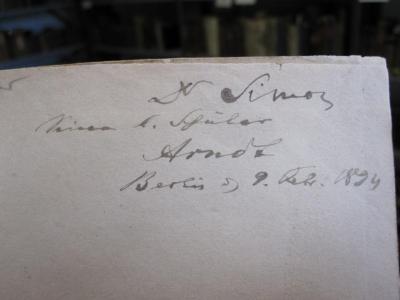 Dr Simon
seinem l. Schüler
Arndt
Berlin d. 9. Febr. 1894